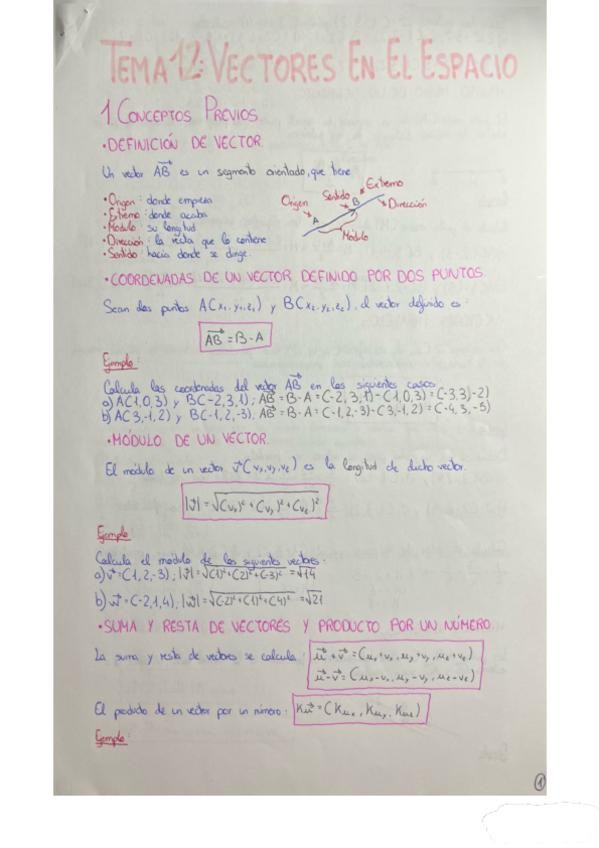 TEMA 12: VECTORES EN EL ESPACIO
1. CONCEPTOS PREVIOS.
• DEFINICIÓN DE VECTOR.
Un vector AB⃗ es un segmento orientado, que tiene
• Origen: donde empieza
• Extremo: donde acaba
• Módulo: su longitud
• Dirección: la recta que lo contiene
• Sentido: hacia donde se dirige.
Origen
Sentido
Extremo
Dirección
A
B
Módulo
• COORDENADAS DE UN VECTOR DEFINIDO POR DOS PUNTOS.
Sean dos puntos A(x₁, y₁, z₁) y B(x₂, y₂, z₂), el vector definido es:
AB⃗ = B - A
Ejemplo:
Calcula las coordenadas del vector AB⃗ en los siguientes casos:
a) A(1, 0, 3) y B(-2, 3, 1); AB⃗ = B - A = (-2, 3, 1) - (1, 0, 3) = (-3, 3, -2)
b) A(3, -1, 2) y B(-1, 2, -3). AB⃗ = B - A = (-1, 2, -3) - (3, -1, 2) = (-4, 3, -5)
• MÓDULO DE UN VECTOR.
El módulo de un vector v⃗(vₓ, vᵧ, v_z) es la longitud de dicho vector.
|v⃗| = √(vₓ)² + (vᵧ)² + (v_z)²
Ejemplo
Calcula el módulo de los siguientes vectores:
a) v⃗ = (1, 2, -3); |v⃗| = √(1)² + (2)² + (-3)² = √14
b) w⃗ = (-2, 1, 4); |w⃗| = √(-2)² + (1)² + (4)² = √21
• SUMA Y RESTA DE VECTORES Y PRODUCTO POR UN NÚMERO.
La suma y resta de vectores se calcula: u⃗ + v⃗ = (uₓ + vₓ, uᵧ + vᵧ, u_z + v_z)
u⃗ - v⃗ = (uₓ - vₓ, uᵧ - vᵧ, u_z - v_z)
El producto de un vector por un número: Ku⃗ = (Kuₓ, Kuᵧ, Ku_z)
Ejemplo:
1